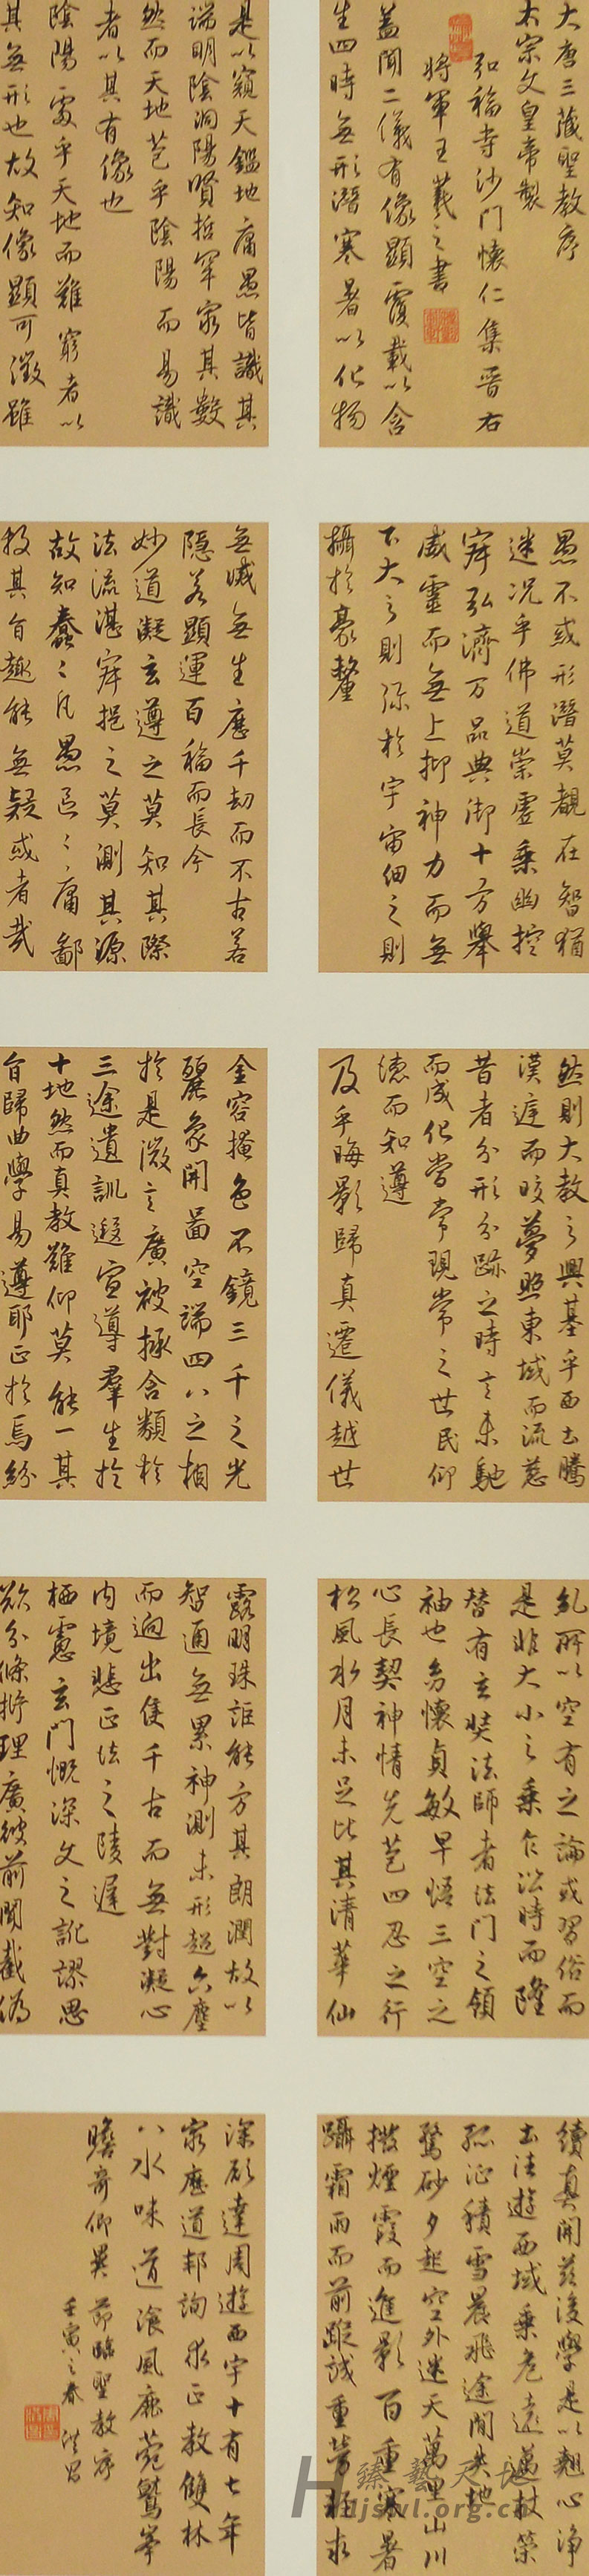 大唐三藏聖教序
太宗文皇帝製
弘福寺沙門懷仁集晉右
將軍王羲之書
蓋聞二儀有像顯覆載以含
生四時無形潛寒暑以化物
是以窺天鑑地庸愚皆識其
端明陰洞陽賢哲罕窮其數
然而天地苞乎陰陽而易識
者以其有像也
陰陽處乎天地而難窮者以
其無形也故知像顯可徵雖
愚不惑形潛莫覩在智猶
迷況乎佛道崇虛乘幽控
寂弘濟万品典御十方舉
威靈而無上抑神力而無
下大之則弥於宇宙細之則
攝於豪釐
無滅無生歷千劫而不古若
隱若顯運百福而長今
妙道凝玄遵之莫知其際
法流湛寂挹之莫測其源
故知蠢〻凡愚區〻庸鄙
投其旨趣能無疑或者哉
然則大教之興基乎西土騰
漢庭而皎夢照東域而流慈
昔者分形分跡之時言未馳
而成化當常現常之世民仰
德而知遵
及乎晦影歸真遷儀越世
金容掩色不鏡三千之光
麗象開啚空端四八之相
於是微言廣被拯含類於
三途遺訓遐宣導群生於
十地然而真教難仰莫能一其
旨歸曲學易遵耶正於焉紛
糺所以空有之論或習俗而
是非大小之乘乍沿時而隆
替有玄奘法師者法門之領
袖也幼懷貞敏早悟三空之
心長契神情先苞四忍之行
松風水月未足比其清華仙
露明珠詎能方其朗潤故以
智通無累神測未形超六塵
而迥出隻千古而無對凝心
內境悲正法之陵遲
栖慮玄門慨深文之訛謬思
欲分條析理廣彼前聞截偽
續真開茲後學是以翹心淨
土法遊西域乘危遠邁杖策
孤征積雪晨飛途間失地
驚砂夕起空外迷天萬里山川
撥煙霞而進影百重寒暑
躡霜雨而前蹤誠重勞輕求
深願達周遊西宇十有七年
窮歷道邦詢求正教雙林
八水味道湌風鹿菀鷲峯
瞻奇仰異 節臨聖教序
壬寅之春
臻藝天地
Hdjswl.org.cn